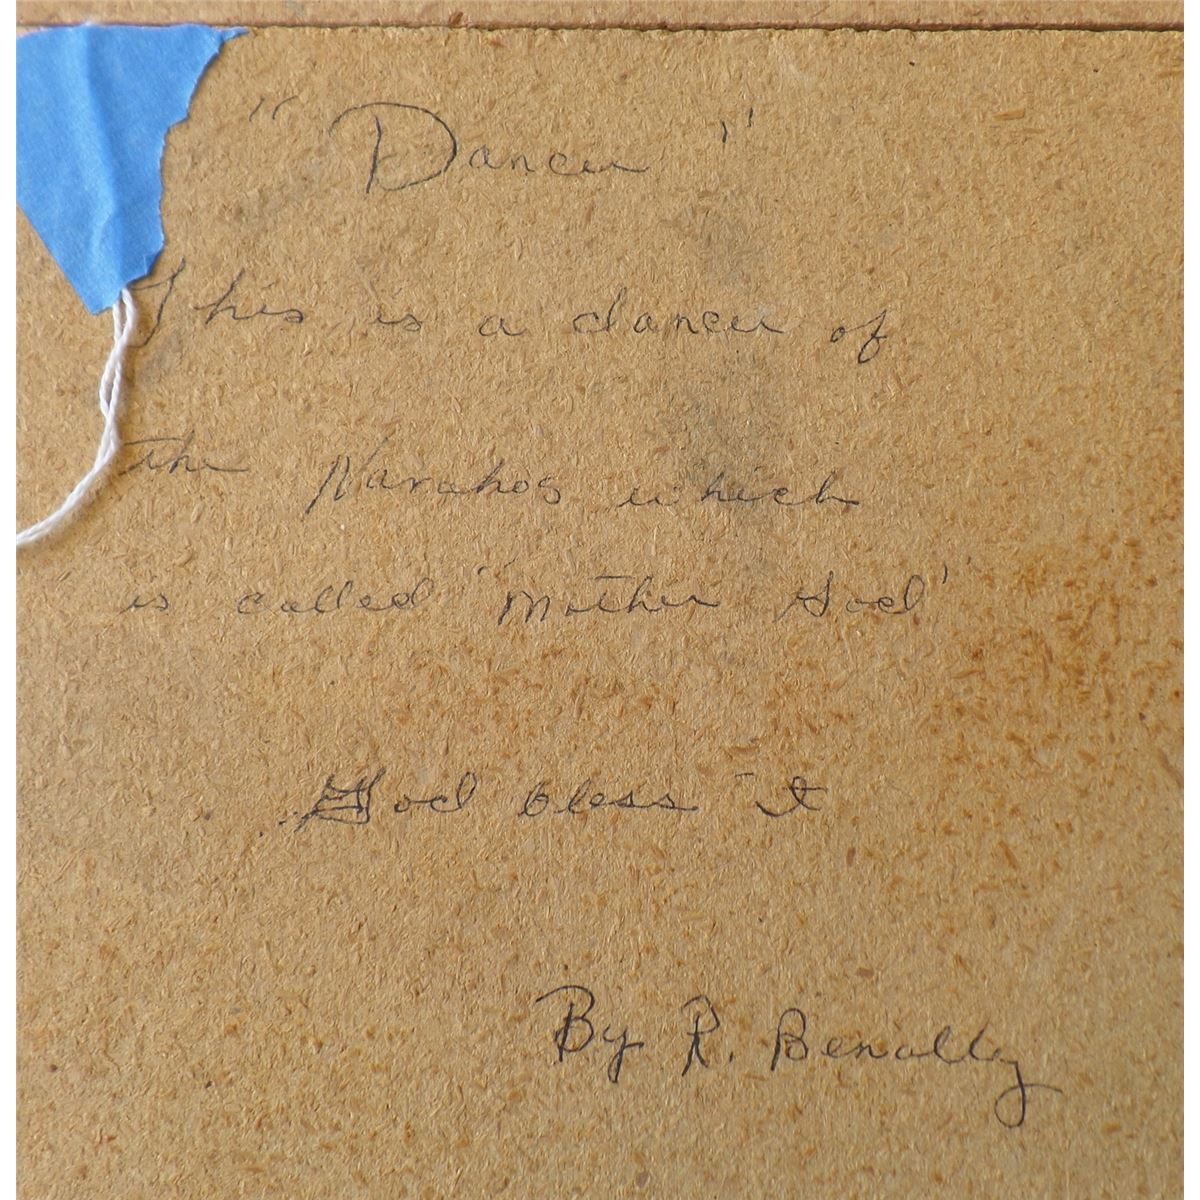 "Dancer"
This is a dancer of
the Navahos which
is called 'Mother God'
God bless it
By R. Benally